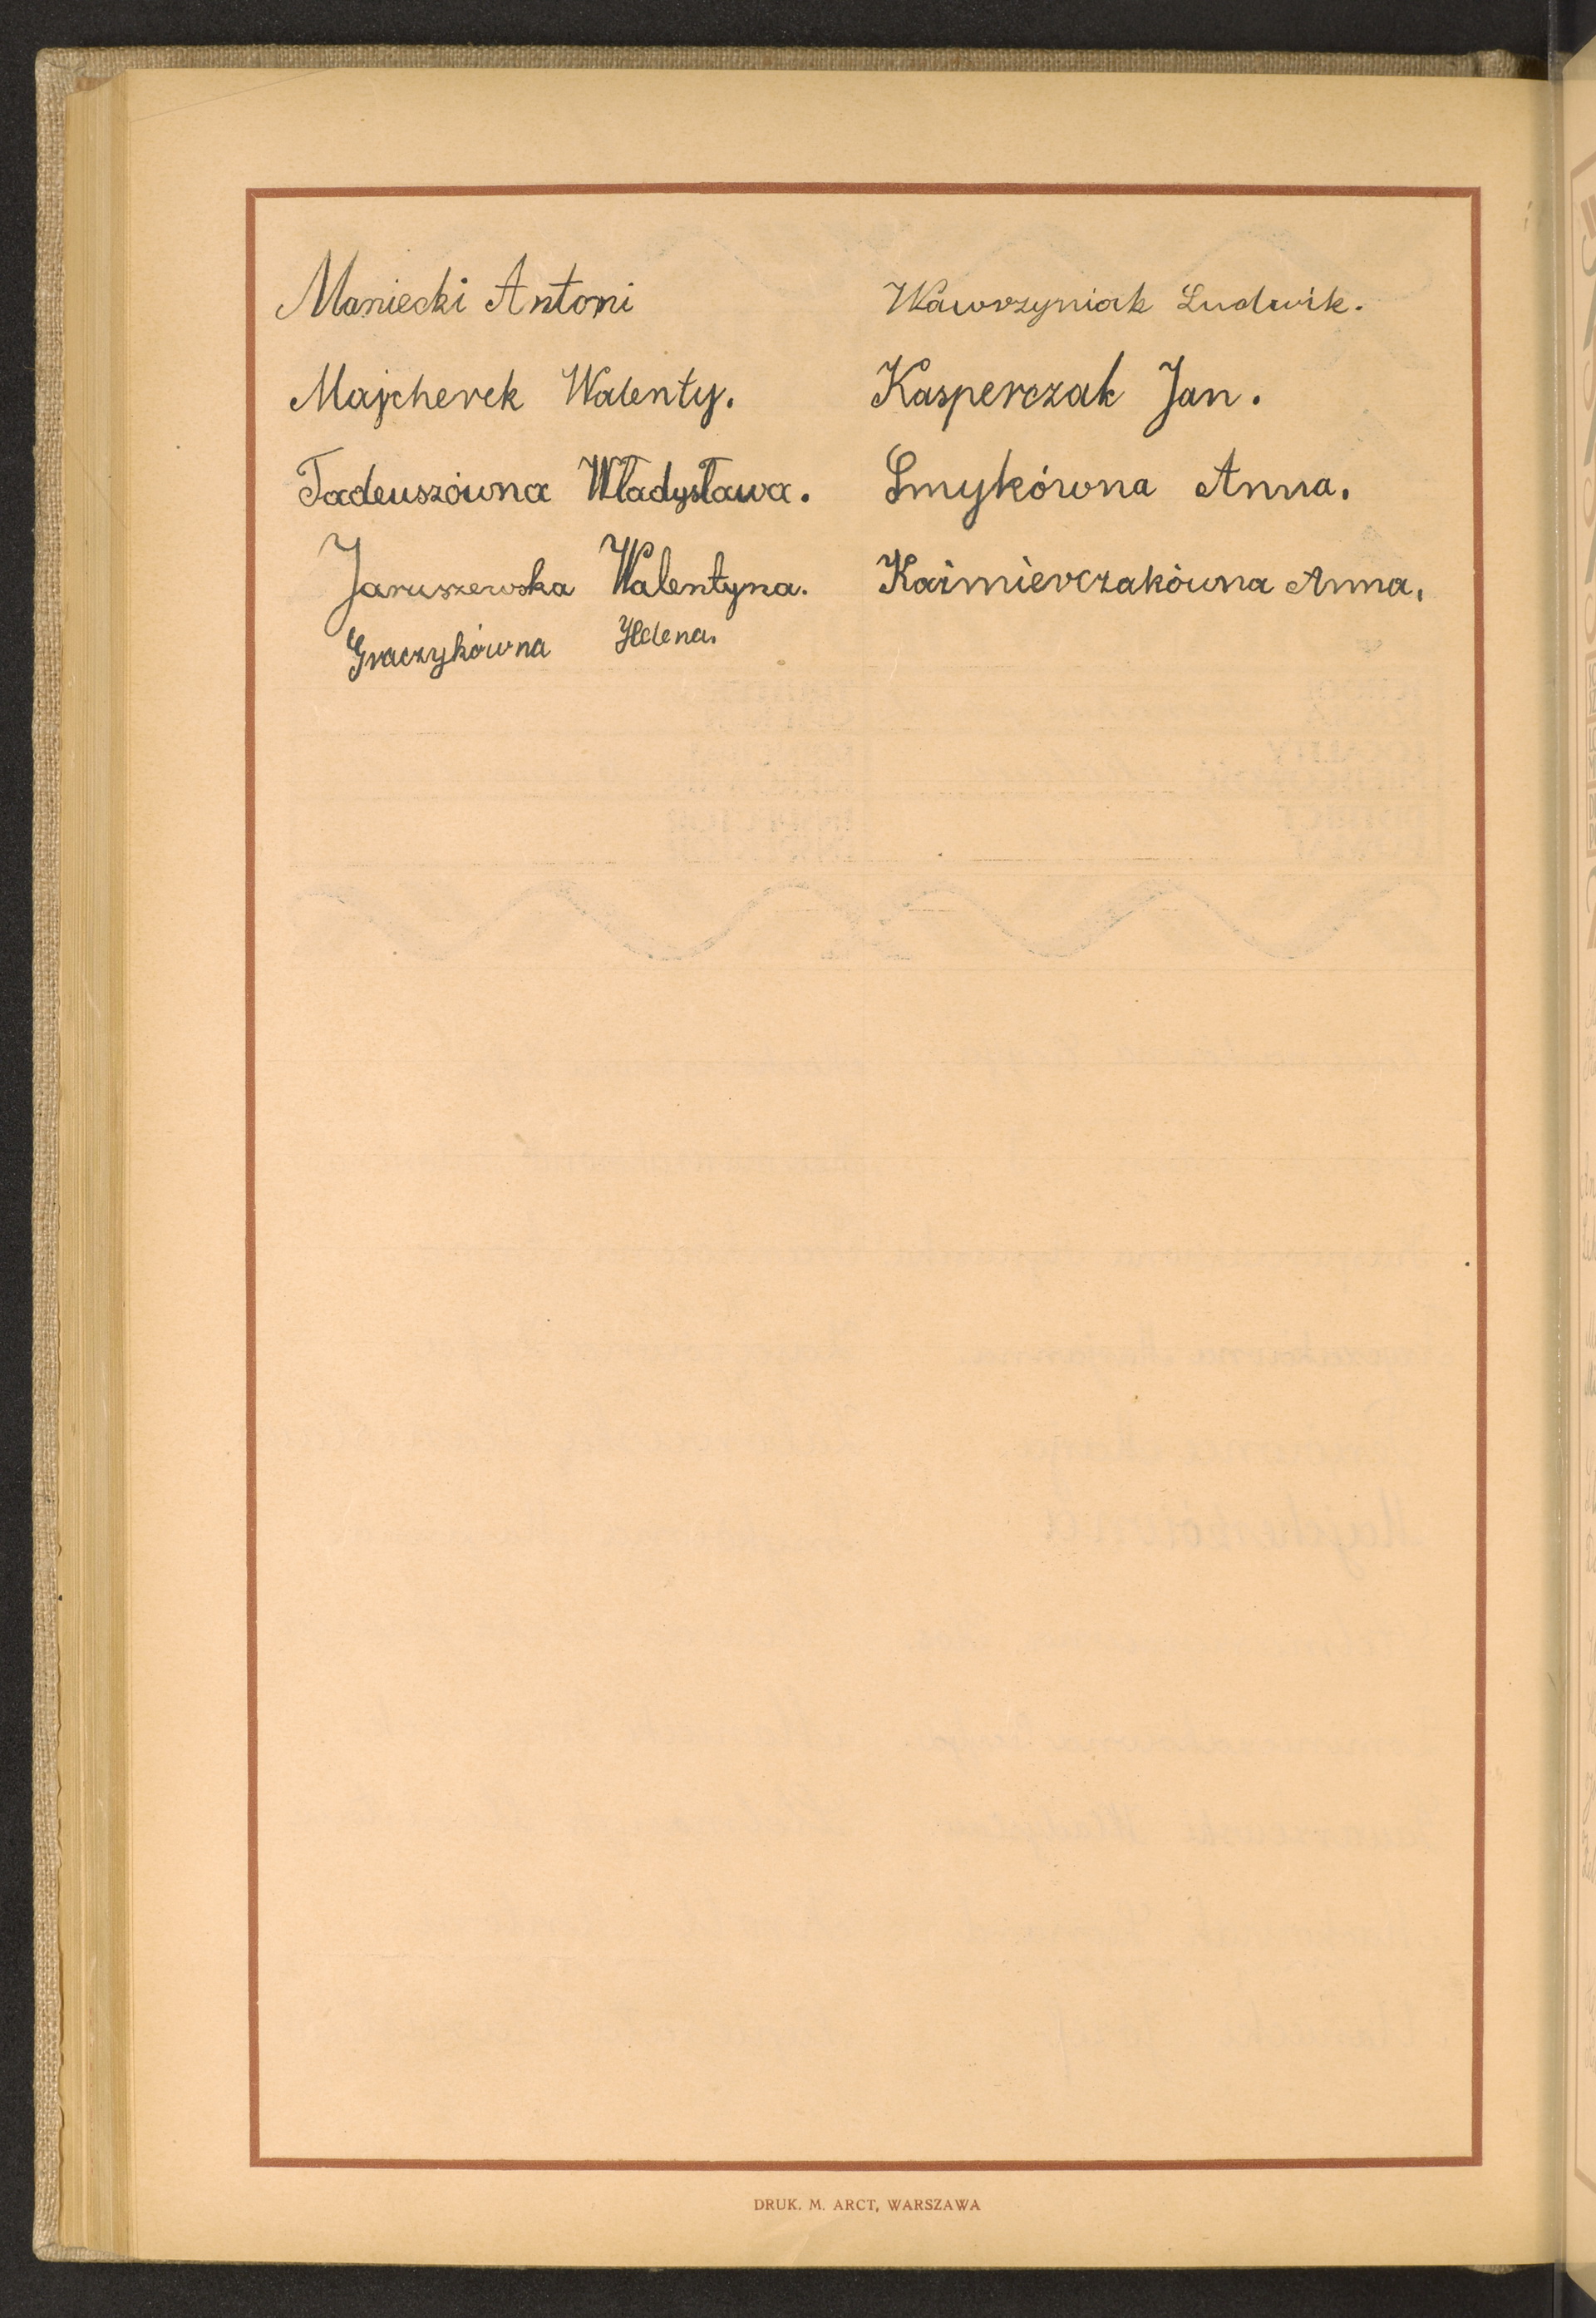 Maniecki Antoni
Majcherek Walenty.
Tadeuszówna Władysława.
Jaruszewska Walentyna.
Graczykówna Helena.
Wawrzyniak Ludwik.
Kasperczak Jan.
Smykówna Anna.
Kaźmierczakówna Anna.
DRUK. M. ARCT, WARSZAWA